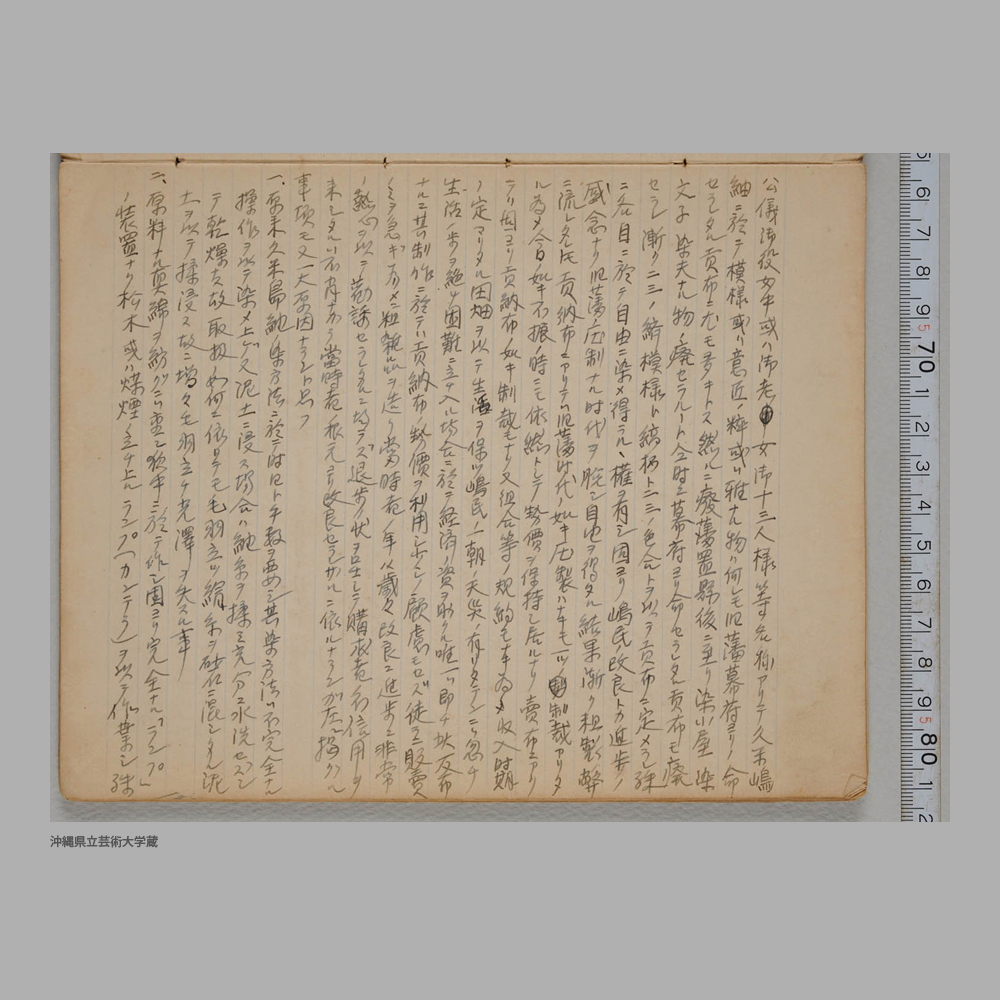 公儀御役女中或ハ御老女御十三人様等ノ名称アリテ久米嶋
紬ニ於テ模様或ハ意匠ノ粋或ハ雅ナル物ハ何レモ旧藩幕府ヨリノ命
セラレタル貢布ニ尤モ多キトス然ルニ廃藩置縣後ニ至リ染小屋染
文子染夫ナル物ノ廃セラルート全時ニ幕府ヨリ命セラレタル貢布モ廃
セラレ漸ク二三ノ絣模様ト縞柄ト二三ノ色合トヲ以ヲ貢布ニ定メラレ殊
ニ各自ニ於テ自由ニ染メ得ラル権ヲ有シ因ヨリ嶋民改良トカ進歩ノ
感念ナリ旧藩圧制ナル時代ヲ脱シ自由ヲ得タル結果漸ク粗製ノ弊
ニ流レタルモ貢納布ニアリテハ旧藩時代ノ如キ圧製ハナキモ一ツノ制裁アリタ
ル為メ今日ノ如キ不振ノ時ニモ依然トシテ勢價ヲ保持シ居ルナリ賣布ニアリ
テハ因ヨリ貢納布ノ如キ制裁モナク又組合等ノ規約モナキ為メ収入時期
ノ定マリタル田畑ヲ以テ生活ヲ保ツ嶋民ノ一朝ノ天災ノ有リタランニハ忽チ
生活ノ歩ヲ絶ツ困難ニ立入ル場合ニ於テ経済ノ資ヲ取ル唯一ハ即チ此反布
ナルニ其ノ制作ニ於テハ貢納布ノ勢價ヲ利用シ少シノ顧慮モセズ徒ニ販賣
ノミヲ急ギカメニ粗雑品ヲ造リ當時者ノ年以歳々改良ニ進歩ニ非常
ノ熱心ヲ以テ勧誘セラレタルニ拘ラズ退歩ノ状ヲ呈シテ購求者ノ不信用ヲ
来シタルハ不肖ナガラ當時者根元ヨリ改良セラレザルニ依ルナランガ左ニ掲グル
事項モ又一大原因ナラント思フ
一、原来久米島紬ノ染方法ニ於テハ日ト手数ヲ要シ其染方法ノ不完全ナル
操作ヲ以テ染メ上ゲ又泥土ニ浸ス場合ハ紬糸ヲ揉ミ充分ニ水洗セズシ
テ乾燥ス故取扱ノ如何ニ依リテモ毛羽立ツ絹糸ヲ砂石ニ混ジタル泥
土ヲ以テ揉浸ス故ニ増々毛羽立チ光澤ヲ失スル事
二、原料ナル真綿ヲ紡グニハ重ニ夜中ニ於テ作シ因ヨリ完全ナル「ランプ」
ノ装置ナク松木或ハ煤煙ノ立チ上ルランプ(カンテラ)ヲ以テ作業シ殊
沖縄県立芸術大学蔵